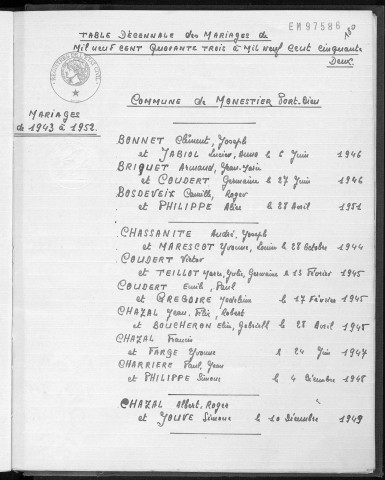 EM97586
TABLE DÉCENNALE des MARIAGES de
MIL NEUF CENT QUARANTE TROIS à MIL NEUF CENT CINQUANTE
DEUX
MARIAGES
de 1943 à 1952.
COMMUNE de MONESTIER Port-Dieu
BONNET Clément, Joseph
et JABIOL Lucie, Anna le 6 Juin 1946
BRIQUET Armand, Jean-Marie
et COUDERT Germaine le 27 Juin 1946
BOSDEVEIX Camille, Roger
et PHILIPPE Alice le 28 Avril 1951
CHASSANITE André, Joseph
et MARESCOT Yvonne, Louise le 28 Octobre 1944
COUDERT Victor
et TEILLOT Marie, Julie, Germaine le 12 Février 1945
COUDERT Emile, Paul
et GREGOIRE Madeleine le 17 Février 1945
CHAZAL Jean, Félix, Robert
et BOUCHERON Elise, Gabrielle le 28 Avril 1945
CHAZAL Francis
et FARGE Yvonne le 24 Juin 1947
CHARRIERE Paul, Jean
et PHILIPPE Simone le 4 Décembre 1948
CHAZAL Albert, Roger
et JOUVE Simone le 10 Décembre 1949